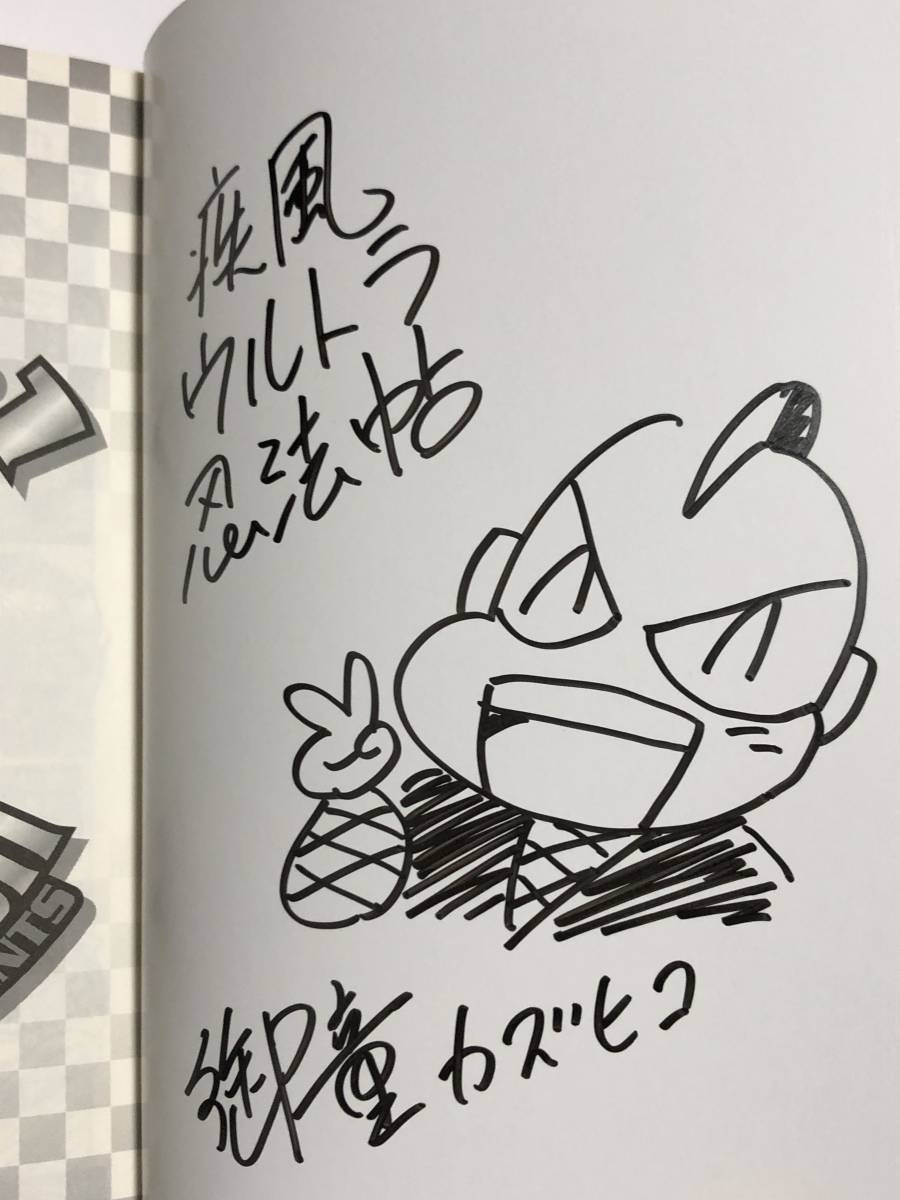 疾風
ウルトラ
忍法帖
御童カズヒコ
NTS